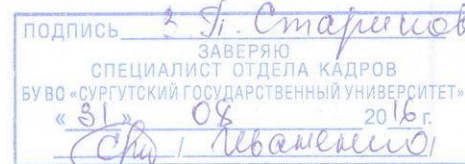 ПОДПИСЬ З. П. Старикова
ЗАВЕРЯЮ
СПЕЦИАЛИСТ ОТДЕЛА КАДРОВ
БУ ВО «СУРГУТСКИЙ ГОСУДАРСТВЕННЫЙ УНИВЕРСИТЕТ»
« 31 » 08 2016 г.
Иваненко